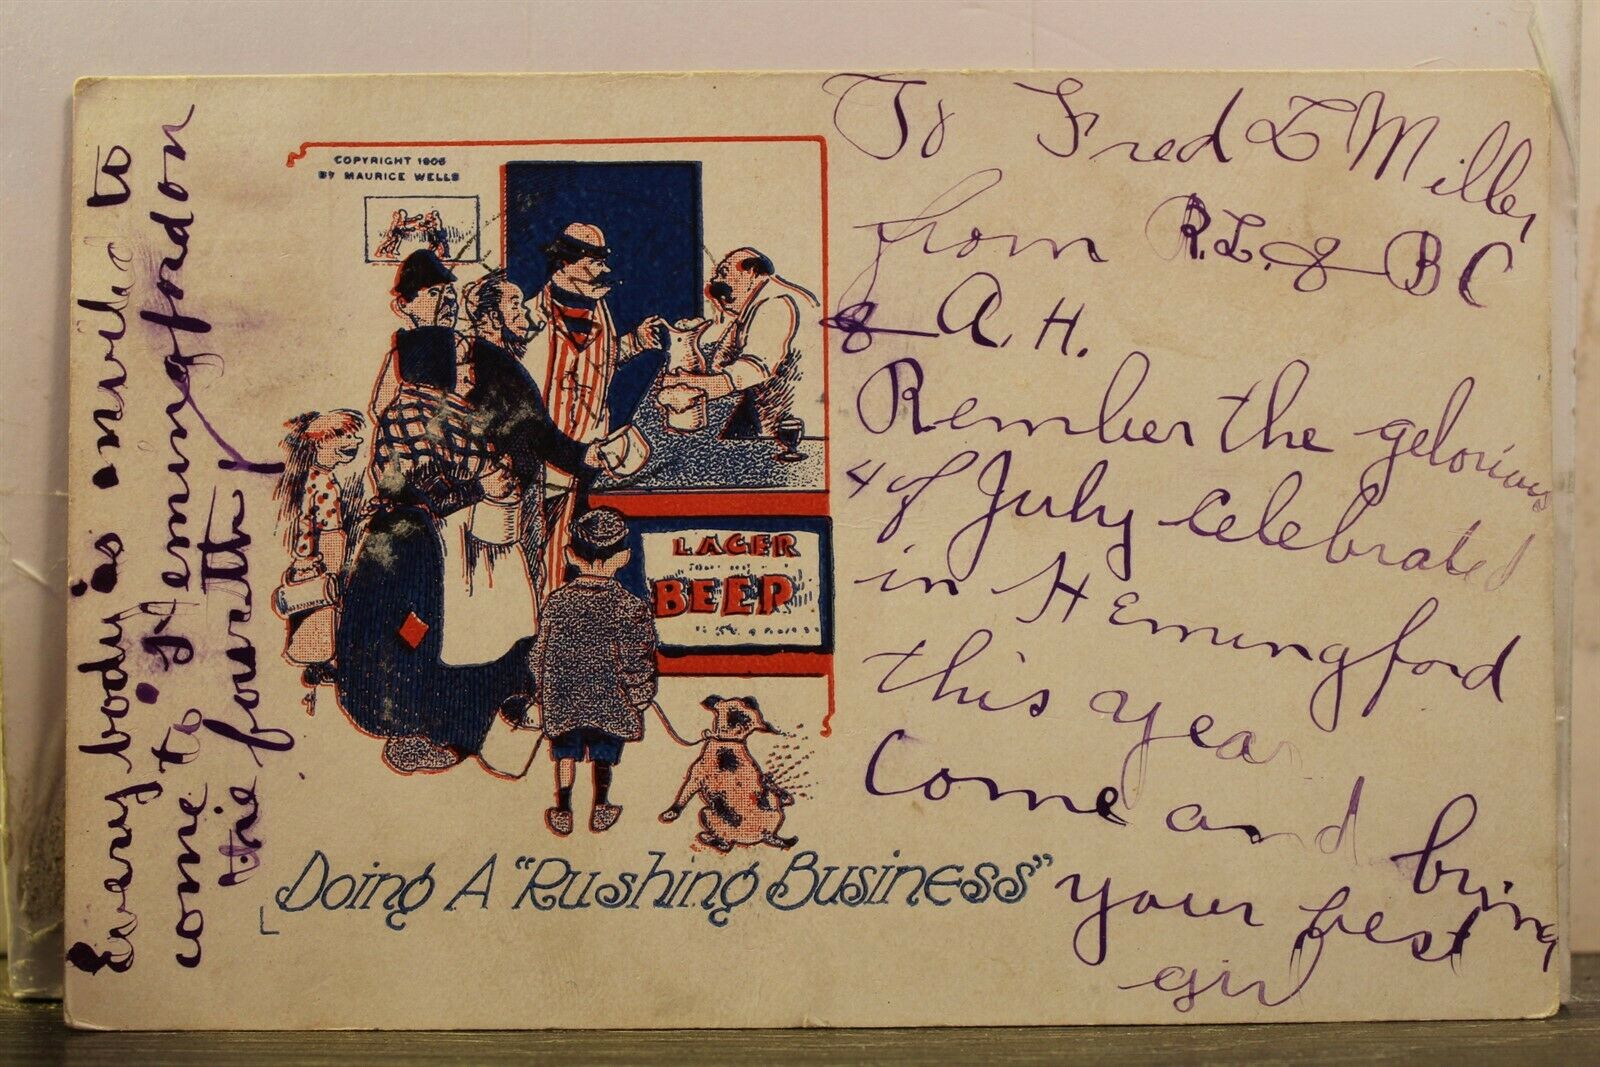 COPYRIGHT 1906
BY MAURICE WELLS
LAGER
BEER
Doing A "Rushing Business"
To Fred L Miller
from R.L. & B C
& A. H.
Rember the gelorious
4 of July celebrated
in Hemingford
this year
Come and bring
your best
girl
Every body is invited to
come to Hemingford on
the fourth!